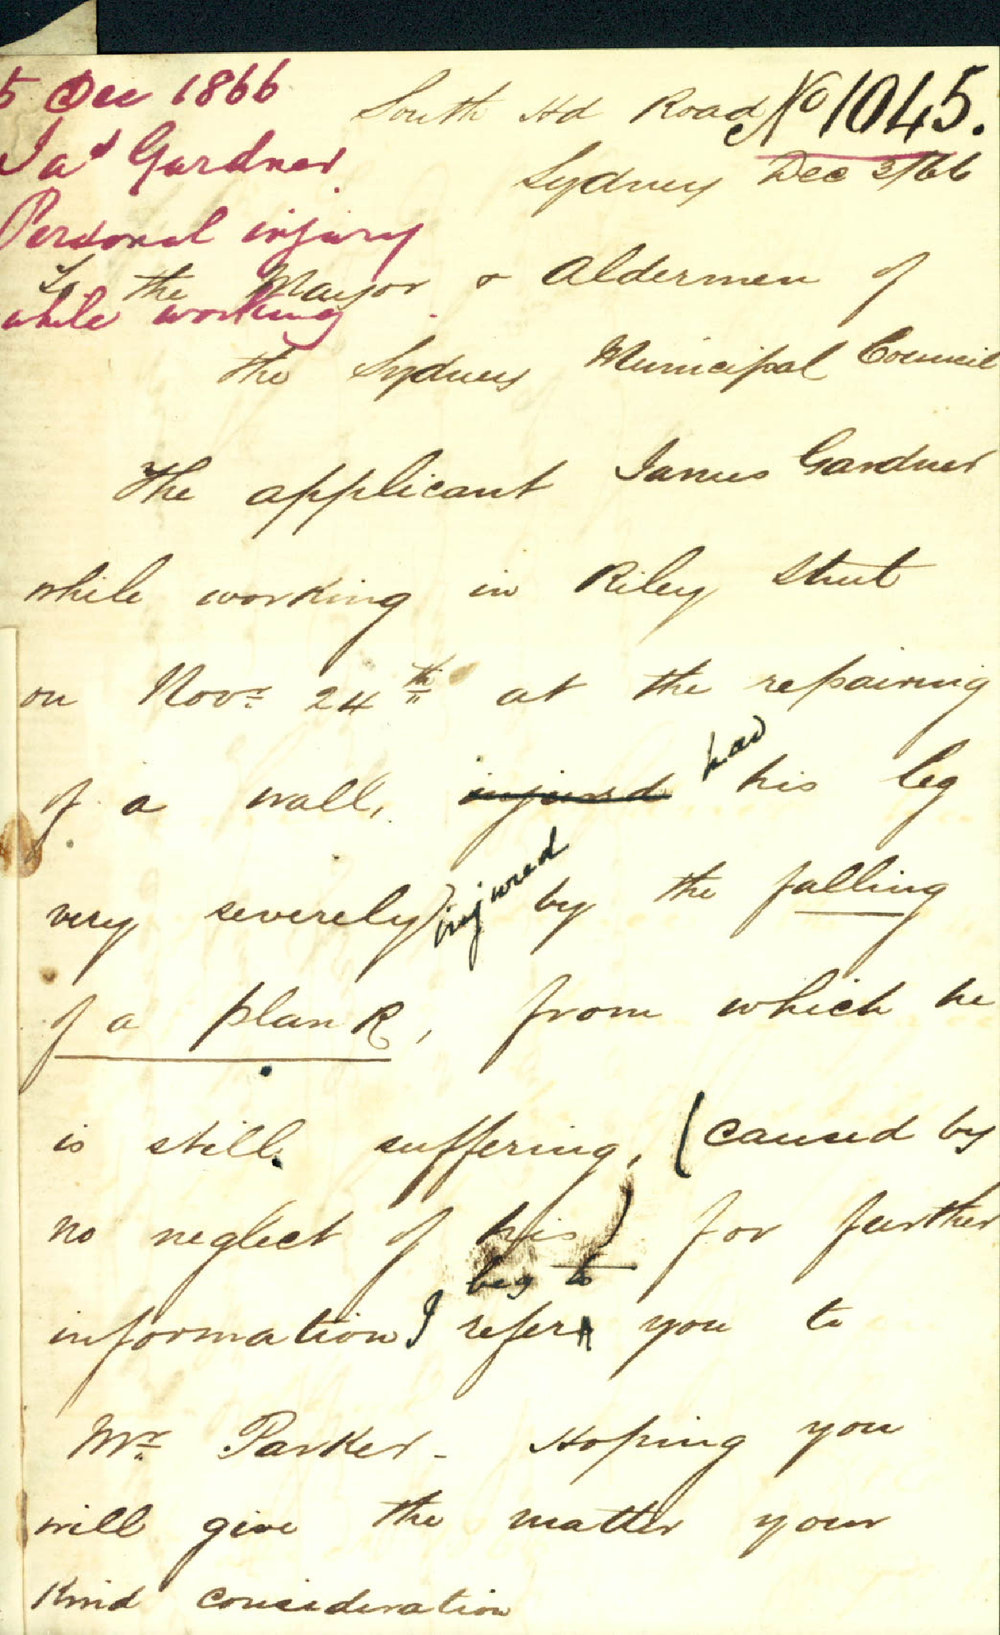 5 Dec 1866
Jas Gardner
Personal injury
while working
No 1045.
South Hd Road
Sydney Dec 3/66
To the Mayor & Aldermen of
the Sydney Municipal Council
The applicant James Gardner
while working in Riley Street
on Novr 24th at the repairing
of a wall, injured had his leg
very severely injured by the falling
of a plank, from which he
is still suffering, (caused by
no neglect of his) for further
information I beg to refer you to
Mr Parker - Hoping you
will give the matter your
Kind consideration